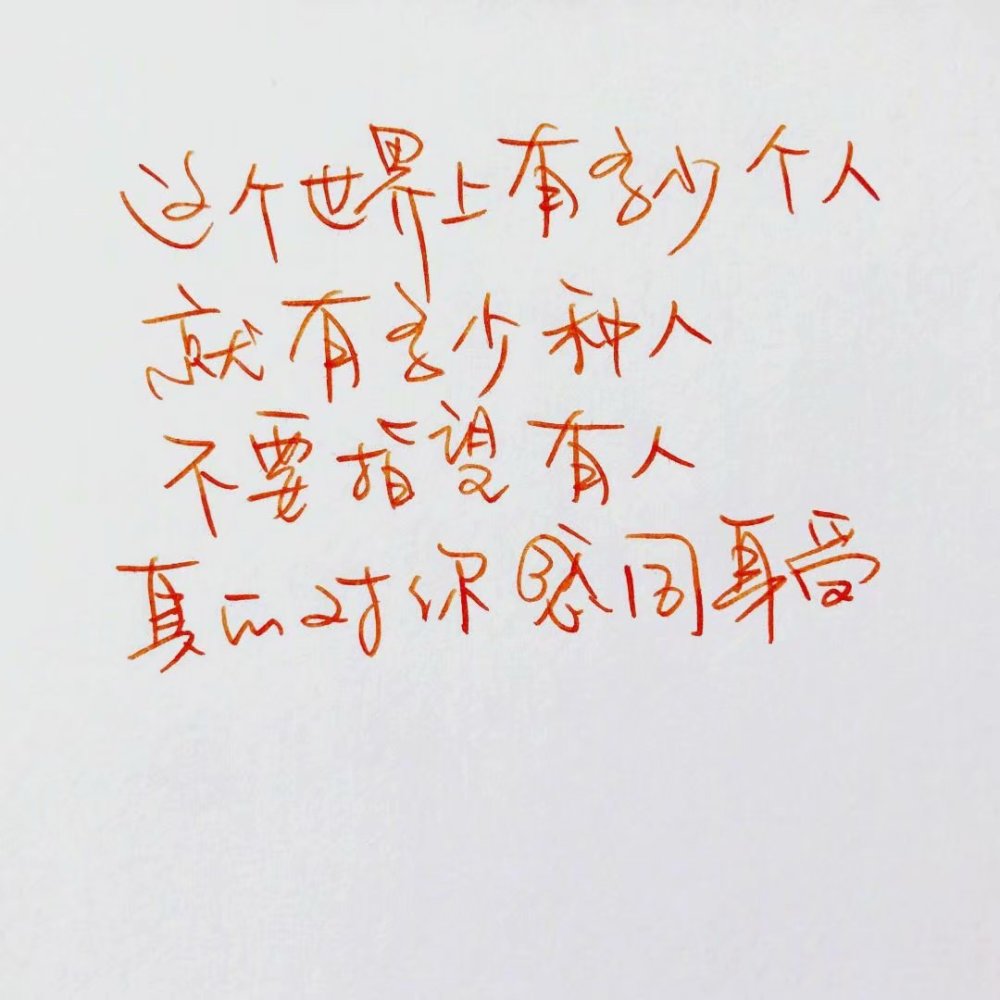 这个世界上有多少个人
就有多少种人
不要指望有人
真正对你感同身受